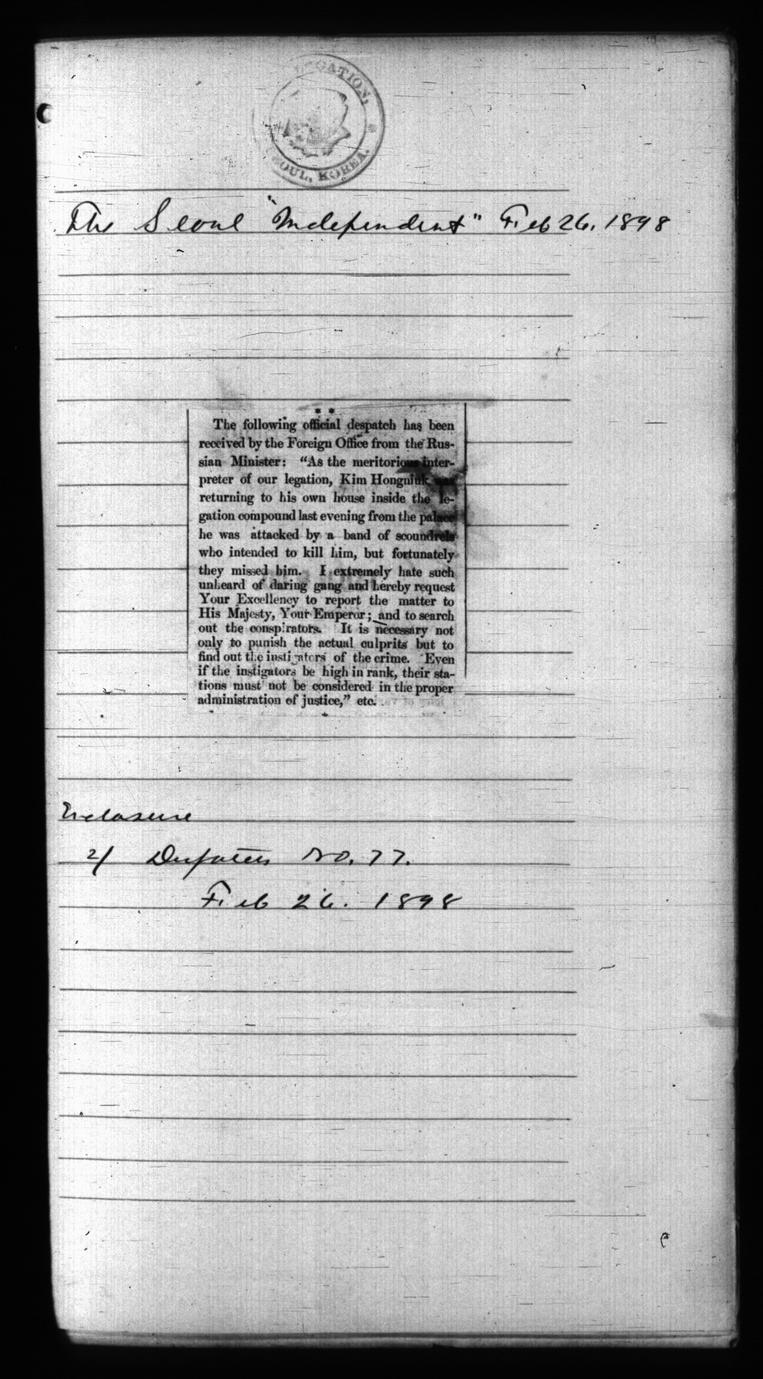 LEGATION,
SEOUL, KOREA.
The Seoul "Independent" Feb 26, 1898
The following official despatch has been
received by the Foreign Office from the Rus-
sian Minister: "As the meritorious inter-
preter of our legation, Kim Hongniuk was
returning to his own house inside the le-
gation compound last evening from the palace
he was attacked by a band of scoundrels
who intended to kill him, but fortunately
they missed him. I extremely hate such
unheard of daring gang and hereby request
Your Excellency to report the matter to
His Majesty, Your Emperor; and to search
out the conspirators. It is necessary not
only to punish the actual culprits but to
find out the instigators of the crime. Even
if the instigators be high in rank, their sta-
tions must not be considered in the proper
administration of justice," etc.
Enclosure
2/ Dispatch No. 77.
Feb 26. 1898